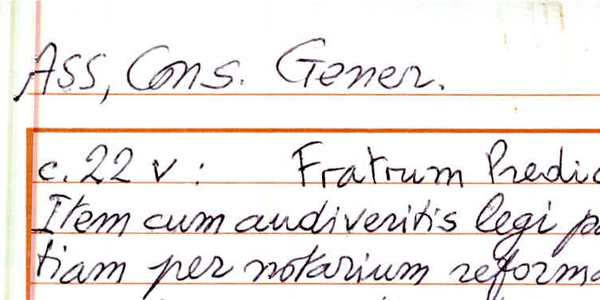 ASS, Cons. Gener.
c. 22 v : Fratrum Predic
Item cum audiveritis legi pe
tiam per notarium reforma